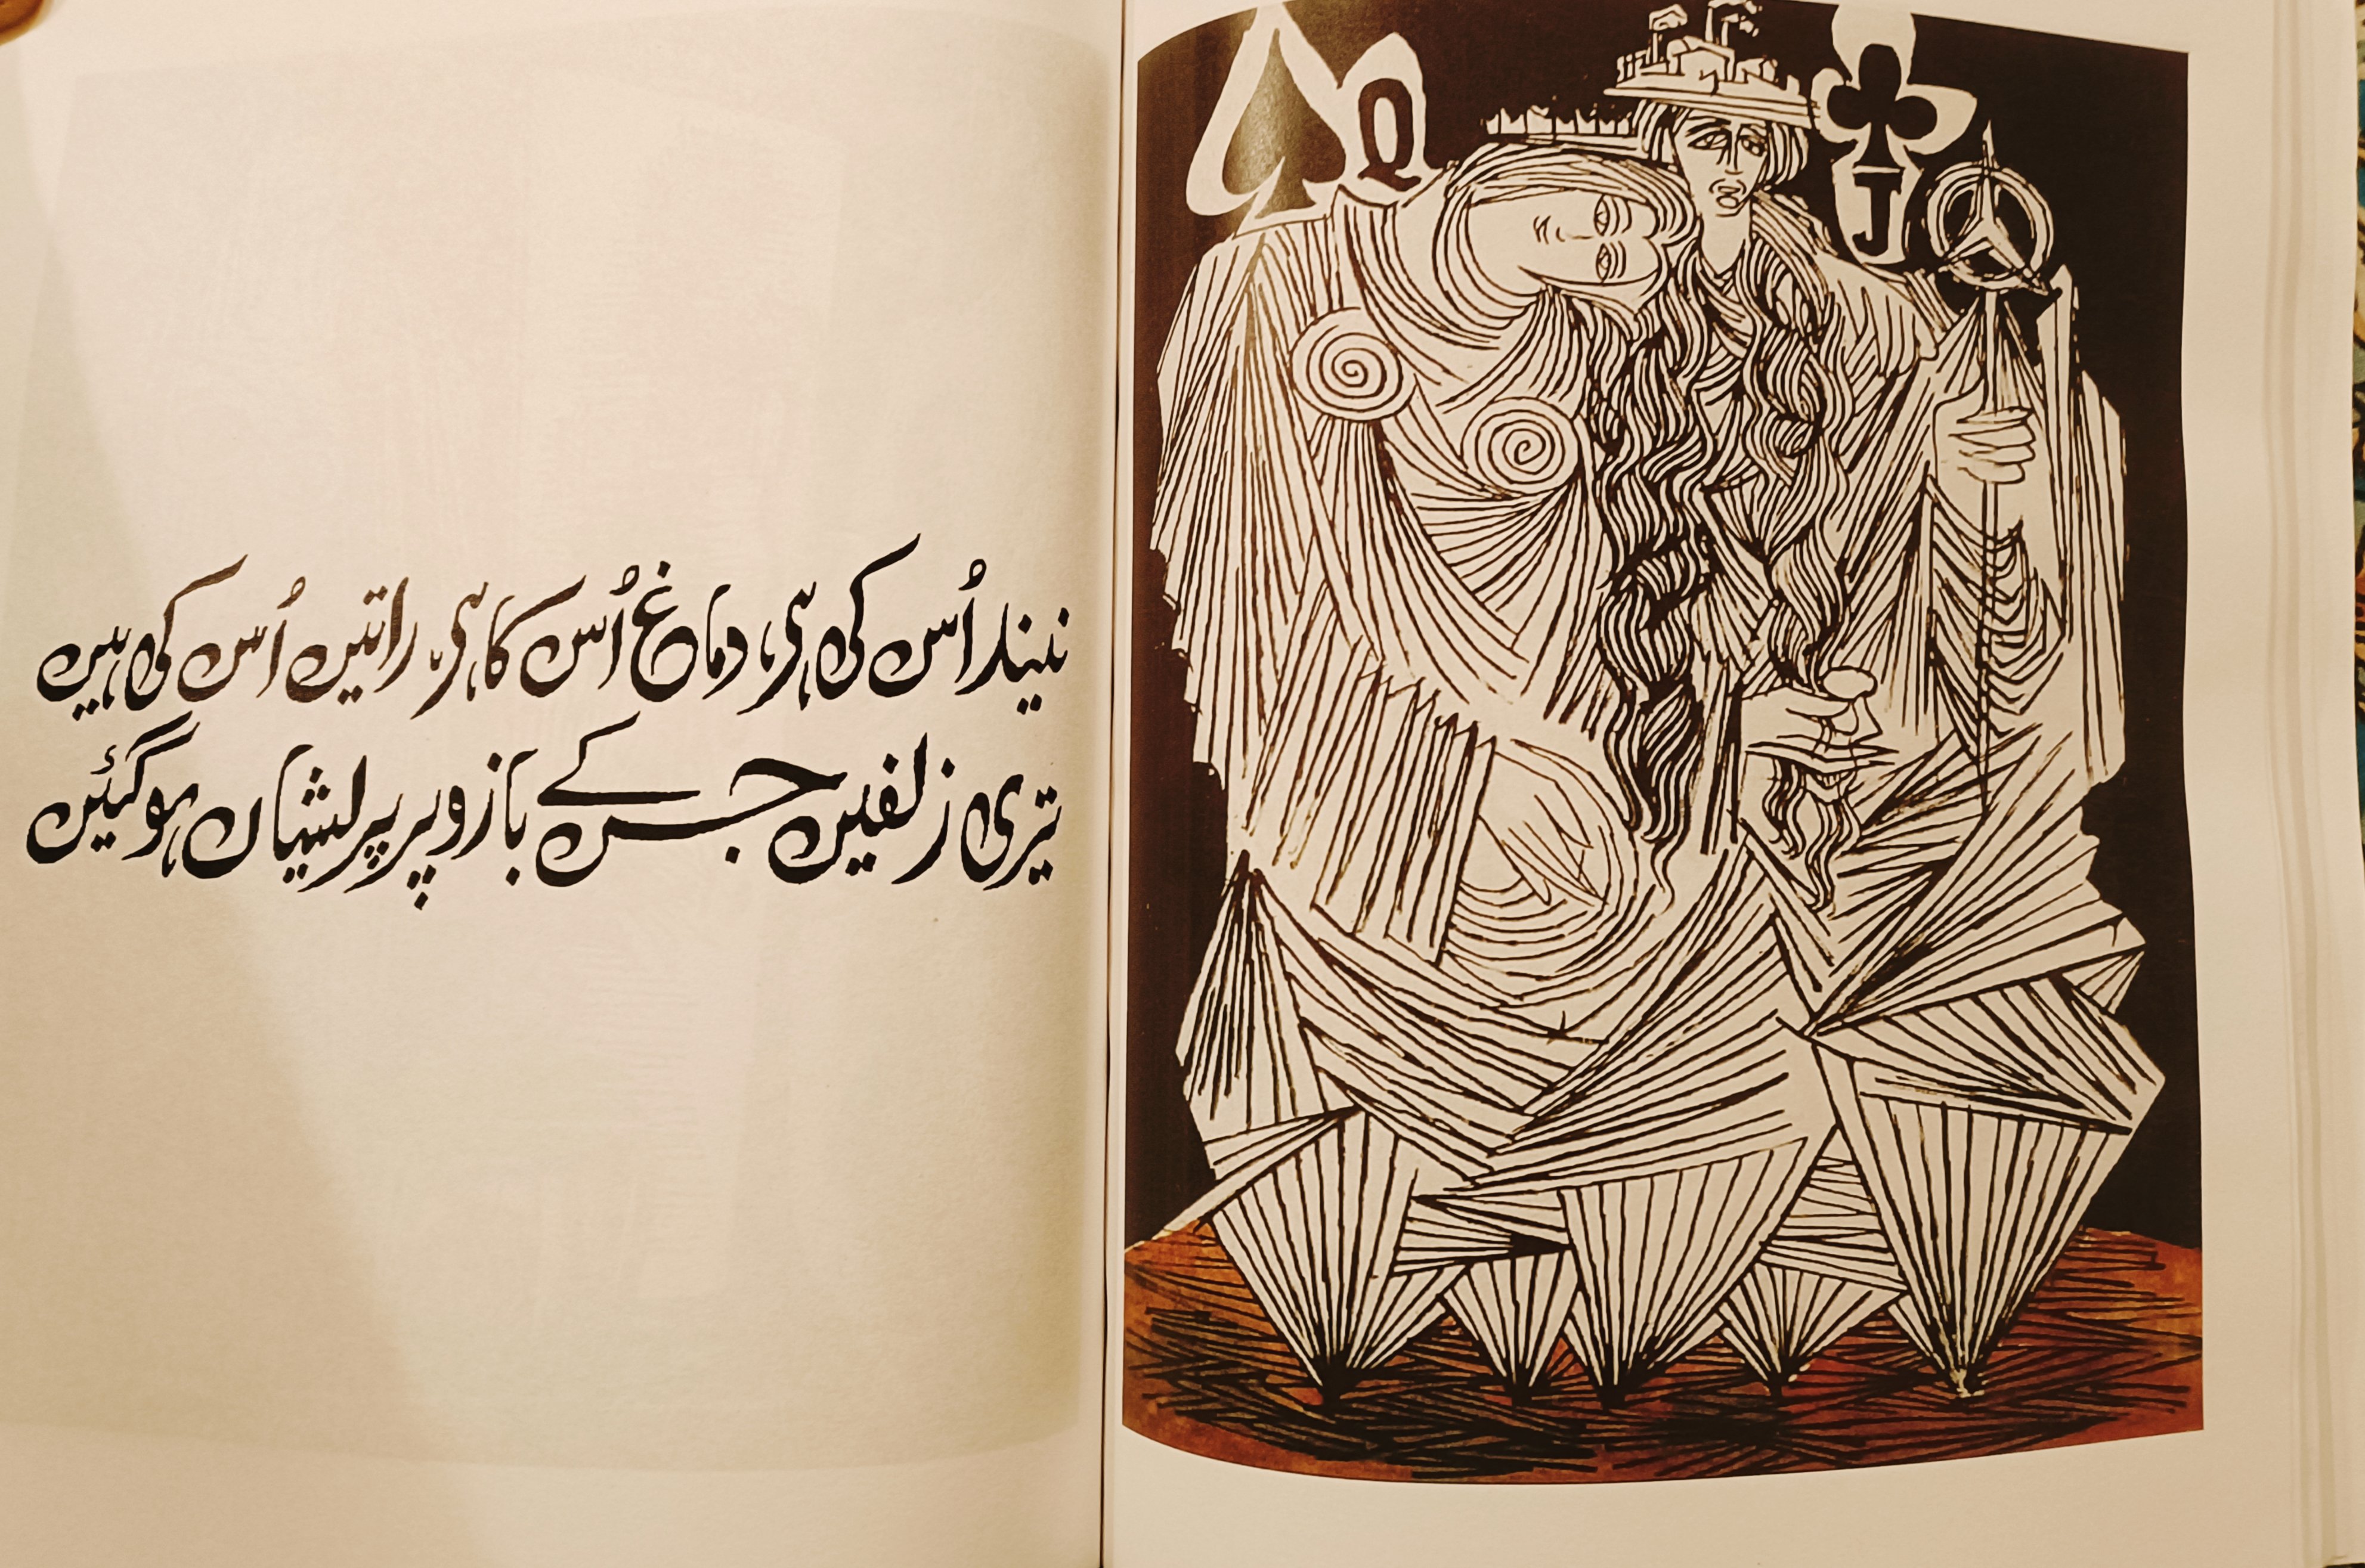 نیند اُس کی ہی، دماغ اُس کا ہی، راتیں اُس کی ہیں
تیری زلفیں جس کے بازو پر پریشاں ہو گئیں
Q
J